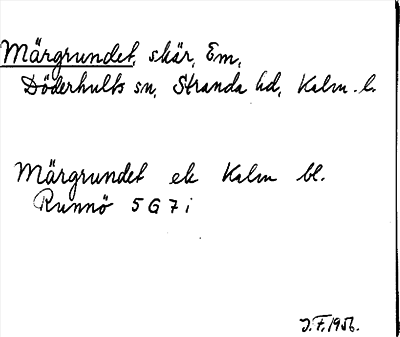 Märgrundet, skär, Em,
Döderhults sn, Stranda hd, Kalm. l.
Märgrundet ek Kalm bl.
Runnö 5 G 7 i
J.F. 1956.